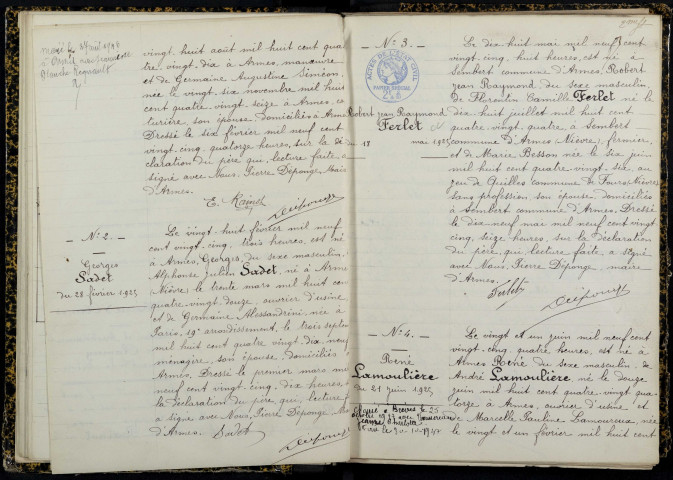 vingt-huit août mil huit cent qua
tre-vingt-dix à Armes, manœuvre
et de Germaine Augustine Simeon,
née le vingt-six novembre mil huit
cent quatre-vingt-seize à Armes, cou
turière son épouse domiciliés à Armes
Dressé le six février mil neuf cent
vingt-cinq, quatorze heures, sur la dé
claration du père qui, lecture faite, a
signé avec Nous, Pierre Déponge, Maire
d'Armes.
- N° 2. -
Georges
Sadet
du 28 février 1925
Le vingt-huit février mil neuf
cent vingt-cinq, trois heures, est né
à Armes, Georges, du sexe masculin,
Alphonse Julien Sadet, né à Armes
Nièvre le trente mars mil huit cent
quatre-vingt-douze, ouvrier d'usine
et de Germaine Alessandrini, née à
Paris, 19e arrondissement, le trois septem
mil huit cent quatre vingt-dix-neuf
ménagère, son épouse, domiciliés à
Armes. Dressé le premier mars mil
neuf cent vingt-cinq, dix heures,
la déclaration du père qui, lecture
a signé avec Nous, Pierre Déponge, Maire
d'Armes. Sadet
- N° 3. -
Robert Jean Raymond
Ferlet
mai 1925
Le dix huit mai mil neuf cent
vingt-cinq, huit heures, est né à
Sembert commune d'Armes, Robert
Jean Raymond, du sexe masculin,
de Florentin Camille Ferlet né le
dix huit juillet mil huit cent
quatre-vingt-quatre, à Sembert
commune d'Armes (Nièvre) fermier,
et de Marie Besson née le six juin
mil huit cent quatre-vingt-six, au
de Quilles commune de Fours (Nièvre)
sans profession, son épouse, domiciliés
à Sembert commune d'Armes. Dressé
le dix-neuf mai mil neuf cent vingt
cinq, seize heures, sur la déclaration
du père qui, lecture faite, a signé
avec Nous, Pierre Déponge, maire
d'Armes.
Ferlet
- N° 4. -
René
Lamoulière
du 21 juin 1925
Le vingt et un juin mil neuf cent
vingt-cinq, quatre heures, est né à
Armes René du sexe masculin, de
André Lamoulière né le douze
juin mil huit cent quatre-vingt-qua
torze à Armes, ouvrier d'usine et
de Marcelle Pauline Lamoureux, née
le vingt et un février mil huit cent